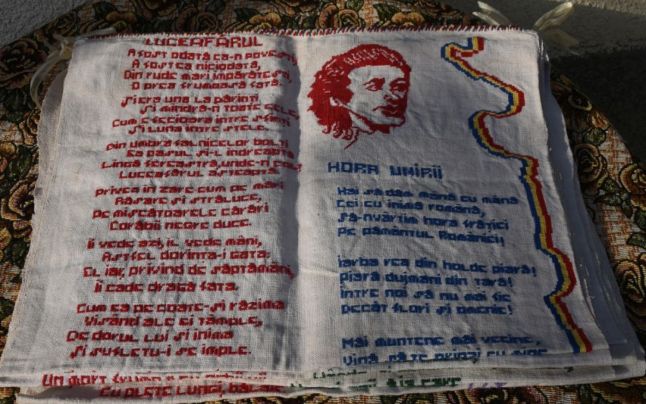 LUCEAFĂRUL
A fost odată ca-n povești
A fost ca niciodată,
Din rude mari împărătești,
O prea frumoasă fată.
Și era una la părinți
Și mîndră-n toate cele
Cum e fecioara între sfinți
Și luna între stele.
Din umbra falnicelor bolți
Ea pasul și-l îndreaptă
Lîngă fereastră, unde-n colț
Luceafărul așteaptă.
Privea în zare cum pe mări
Răsare și străluce,
Pe mișcătoarele cărări
Corăbii negre duce.
Îl vede azi, îl vede mâni,
Astfel dorința-i gata;
El iar, privind de săptămâni,
Îi cade dragă fata.
Cum ea pe coate-și răzima
Visând ale ei tâmple,
De dorul lui și inima
Și sufletu-i se împle.
Un mort
Cu plete lungi,
HORA UNIRII
Hai să dăm mână cu mână
Cei cu inima română,
Să-nvârtim hora frăției
Pe pământul României!
Iarba rea din holde piară!
Piară dujmani din țară!
Între noi să nu mai fie
Decât flori și omenie!
Măi muntene măi vecine,
Vină să te prinzi cu mine